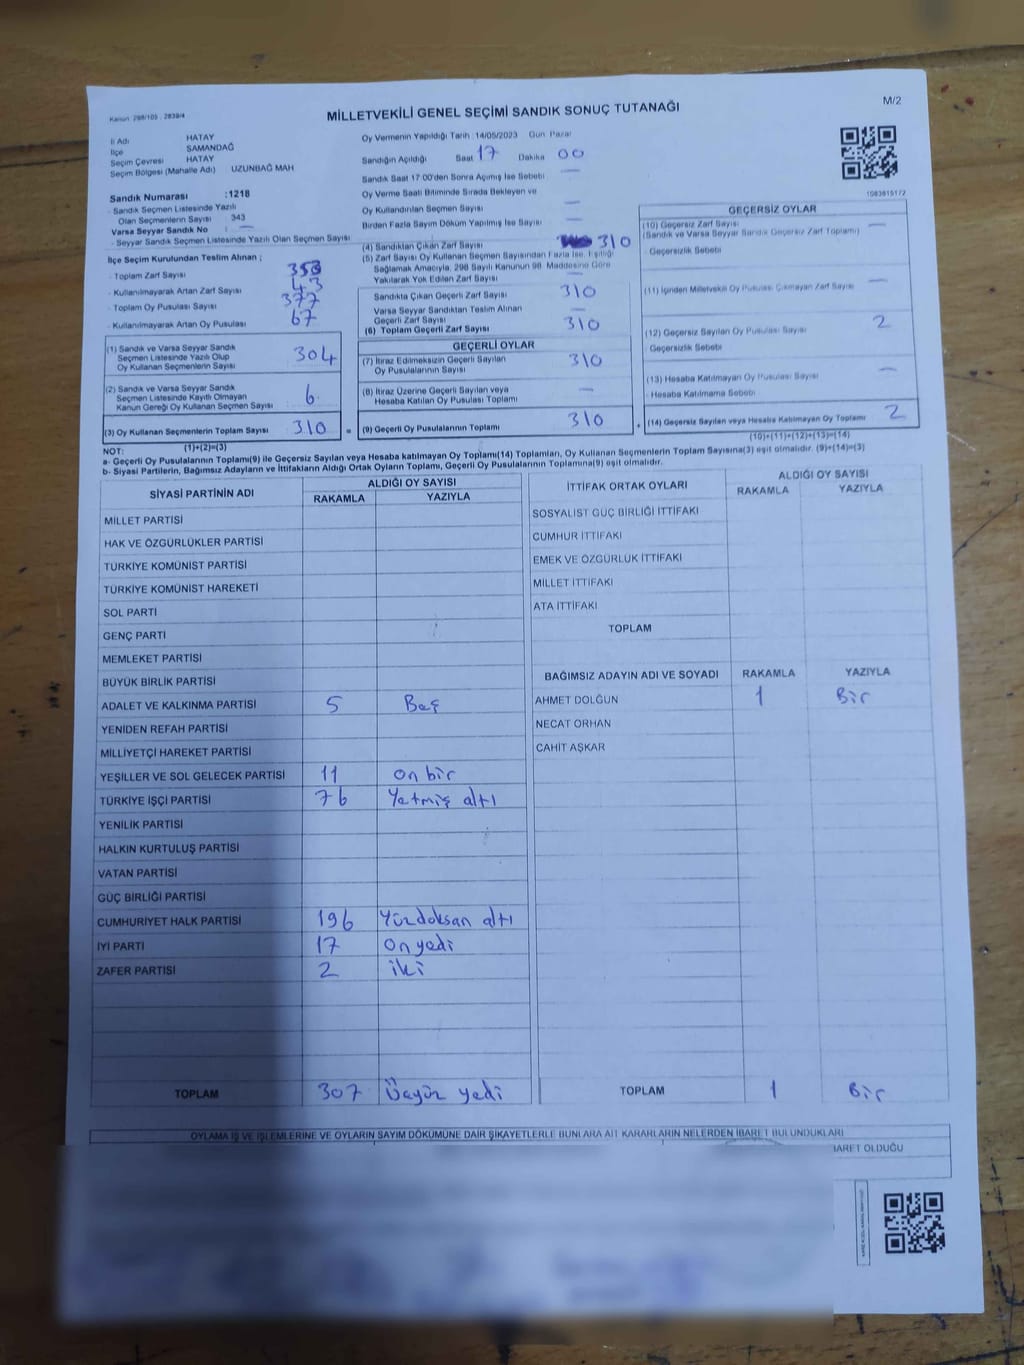 M/2
Kanun 298/105 - 2839/4
MİLLETVEKİLİ GENEL SEÇİMİ SANDIK SONUÇ TUTANAĞI
İl Adı HATAY
İlçe SAMANDAĞ
Seçim Çevresi HATAY
Seçim Bölgesi (Mahalle Adı) UZUNBAĞ MAH
Sandık Numarası :1218
- Sandık Seçmen Listesinde Yazılı
Olan Seçmenlerin Sayısı 343
Varsa Seyyar Sandık No : —
- Seyyar Sandık Seçmen Listesinde Yazılı Olan Seçmen Sayısı
İlçe Seçim Kurulundan Teslim Alınan ;
- Toplam Zarf Sayısı 353
- Kullanılmayarak Artan Zarf Sayısı 43
- Toplam Oy Pusulası Sayısı 377
- Kullanılmayarak Artan Oy Pusulası 67
(1) Sandık ve Varsa Seyyar Sandık
Seçmen Listesinde Yazılı Olup
Oy Kullanan Seçmenlerin Sayısı 304
(2) Sandık ve Varsa Seyyar Sandık
Seçmen Listesinde Kayıtlı Olmayan
Kanun Gereği Oy Kullanan Seçmen Sayısı 6
(3) Oy Kullanan Seçmenlerin Toplam Sayısı 310 =
(1)+(2)=(3)
Oy Vermenin Yapıldığı Tarih :14/05/2023 Gün Pazar
Sandığın Açıldığı Saat 17 Dakika 00
Sandık Saat 17:00'den Sonra Açımış İse Sebebi —
Oy Verme Saati Bitiminde Sırada Bekleyen ve
Oy Kullandırılan Seçmen Sayısı —
Birden Fazla Sayım Döküm Yapılmış İse Sayısı —
(4) Sandıktan Çıkan Zarf Sayısı 310
(5) Zarf Sayısı Oy Kullanan Seçmen Sayısından Fazla İse, Eşitliği
Sağlamak Amacıyla, 298 Sayılı Kanunun 98. Maddesine Göre
Yakılarak Yok Edilen Zarf Sayısı —
Sandıkta Çıkan Geçerli Zarf Sayısı 310
Varsa Seyyar Sandıktan Teslim Alınan
Geçerli Zarf Sayısı —
(6) Toplam Geçerli Zarf Sayısı 310
GEÇERLİ OYLAR
(7) İtiraz Edilmeksizin Geçerli Sayılan
Oy Pusulalarının Sayısı 310
(8) İtiraz Üzerine Geçerli Sayılan veya
Hesaba Katılan Oy Pusulası Toplamı —
(9) Geçerli Oy Pusulalarının Toplamı 310 +
1083815172
GEÇERSİZ OYLAR
(10) Geçersiz Zarf Sayısı —
(Sandık ve Varsa Seyyar Sandık Geçersiz Zarf Toplamı)
- Geçersizlik Sebebi
(11) İçinden Milletvekili Oy Pusulası Çıkmayan Zarf Sayısı —
(12) Geçersiz Sayılan Oy Pusulası Sayısı 2
- Geçersizlik Sebebi
(13) Hesaba Katılmayan Oy Pusulası Sayısı —
- Hesaba Katılmama Sebebi
(14) Geçersiz Sayılan veya Hesaba Katılmayan Oy Toplamı 2
(10)+(11)+(12)+(13)=(14)
NOT:
a- Geçerli Oy Pusulalarının Toplamı(9) ile Geçersiz Sayılan veya Hesaba katılmayan Oy Toplamı(14) Toplamları, Oy Kullanan Seçmenlerin Toplam Sayısına(3) eşit olmalıdır. (9)+(14)=(3)
b- Siyasi Partilerin, Bağımsız Adayların ve İttifakların Aldığı Ortak Oyların Toplamı, Geçerli Oy Pusulalarının Toplamına(9) eşit olmalıdır.
SİYASİ PARTİNİN ADI ALDIĞI OY SAYISI
RAKAMLA YAZIYLA
MİLLET PARTİSİ
HAK VE ÖZGÜRLÜKLER PARTİSİ
TÜRKİYE KOMÜNİST PARTİSİ
TÜRKİYE KOMÜNİST HAREKETİ
SOL PARTİ
GENÇ PARTİ
MEMLEKET PARTİSİ
BÜYÜK BİRLİK PARTİSİ
ADALET VE KALKINMA PARTİSİ 5 Beş
YENİDEN REFAH PARTİSİ
MİLLİYETÇİ HAREKET PARTİSİ
YEŞİLLER VE SOL GELECEK PARTİSİ 11 on bir
TÜRKİYE İŞÇİ PARTİSİ 76 Yetmiş altı
YENİLİK PARTİSİ
HALKIN KURTULUŞ PARTİSİ
VATAN PARTİSİ
GÜÇ BİRLİĞİ PARTİSİ
CUMHURİYET HALK PARTİSİ 196 Yüzdoksan altı
İYİ PARTİ 17 On yedi
ZAFER PARTİSİ 2 iki
TOPLAM 307 Üçyüz yedi
İTTİFAK ORTAK OYLARI ALDIĞI OY SAYISI
RAKAMLA YAZIYLA
SOSYALİST GÜÇ BİRLİĞİ İTTİFAKI
CUMHUR İTTİFAKI
EMEK VE ÖZGÜRLÜK İTTİFAKI
MİLLET İTTİFAKI
ATA İTTİFAKI
TOPLAM
BAĞIMSIZ ADAYIN ADI VE SOYADI RAKAMLA YAZIYLA
AHMET DOLĞUN 1 Bir
NECAT ORHAN
CAHİT AŞKAR
TOPLAM 1 Bir
OYLAMA İŞ VE İŞLEMLERİNE VE OYLARIN SAYIM DÖKÜMÜNE DAİR ŞİKAYETLERLE BUNLARA AİT KARARLARIN NELERDEN İBARET BULUNDUKLARI
BARET OLDUĞU